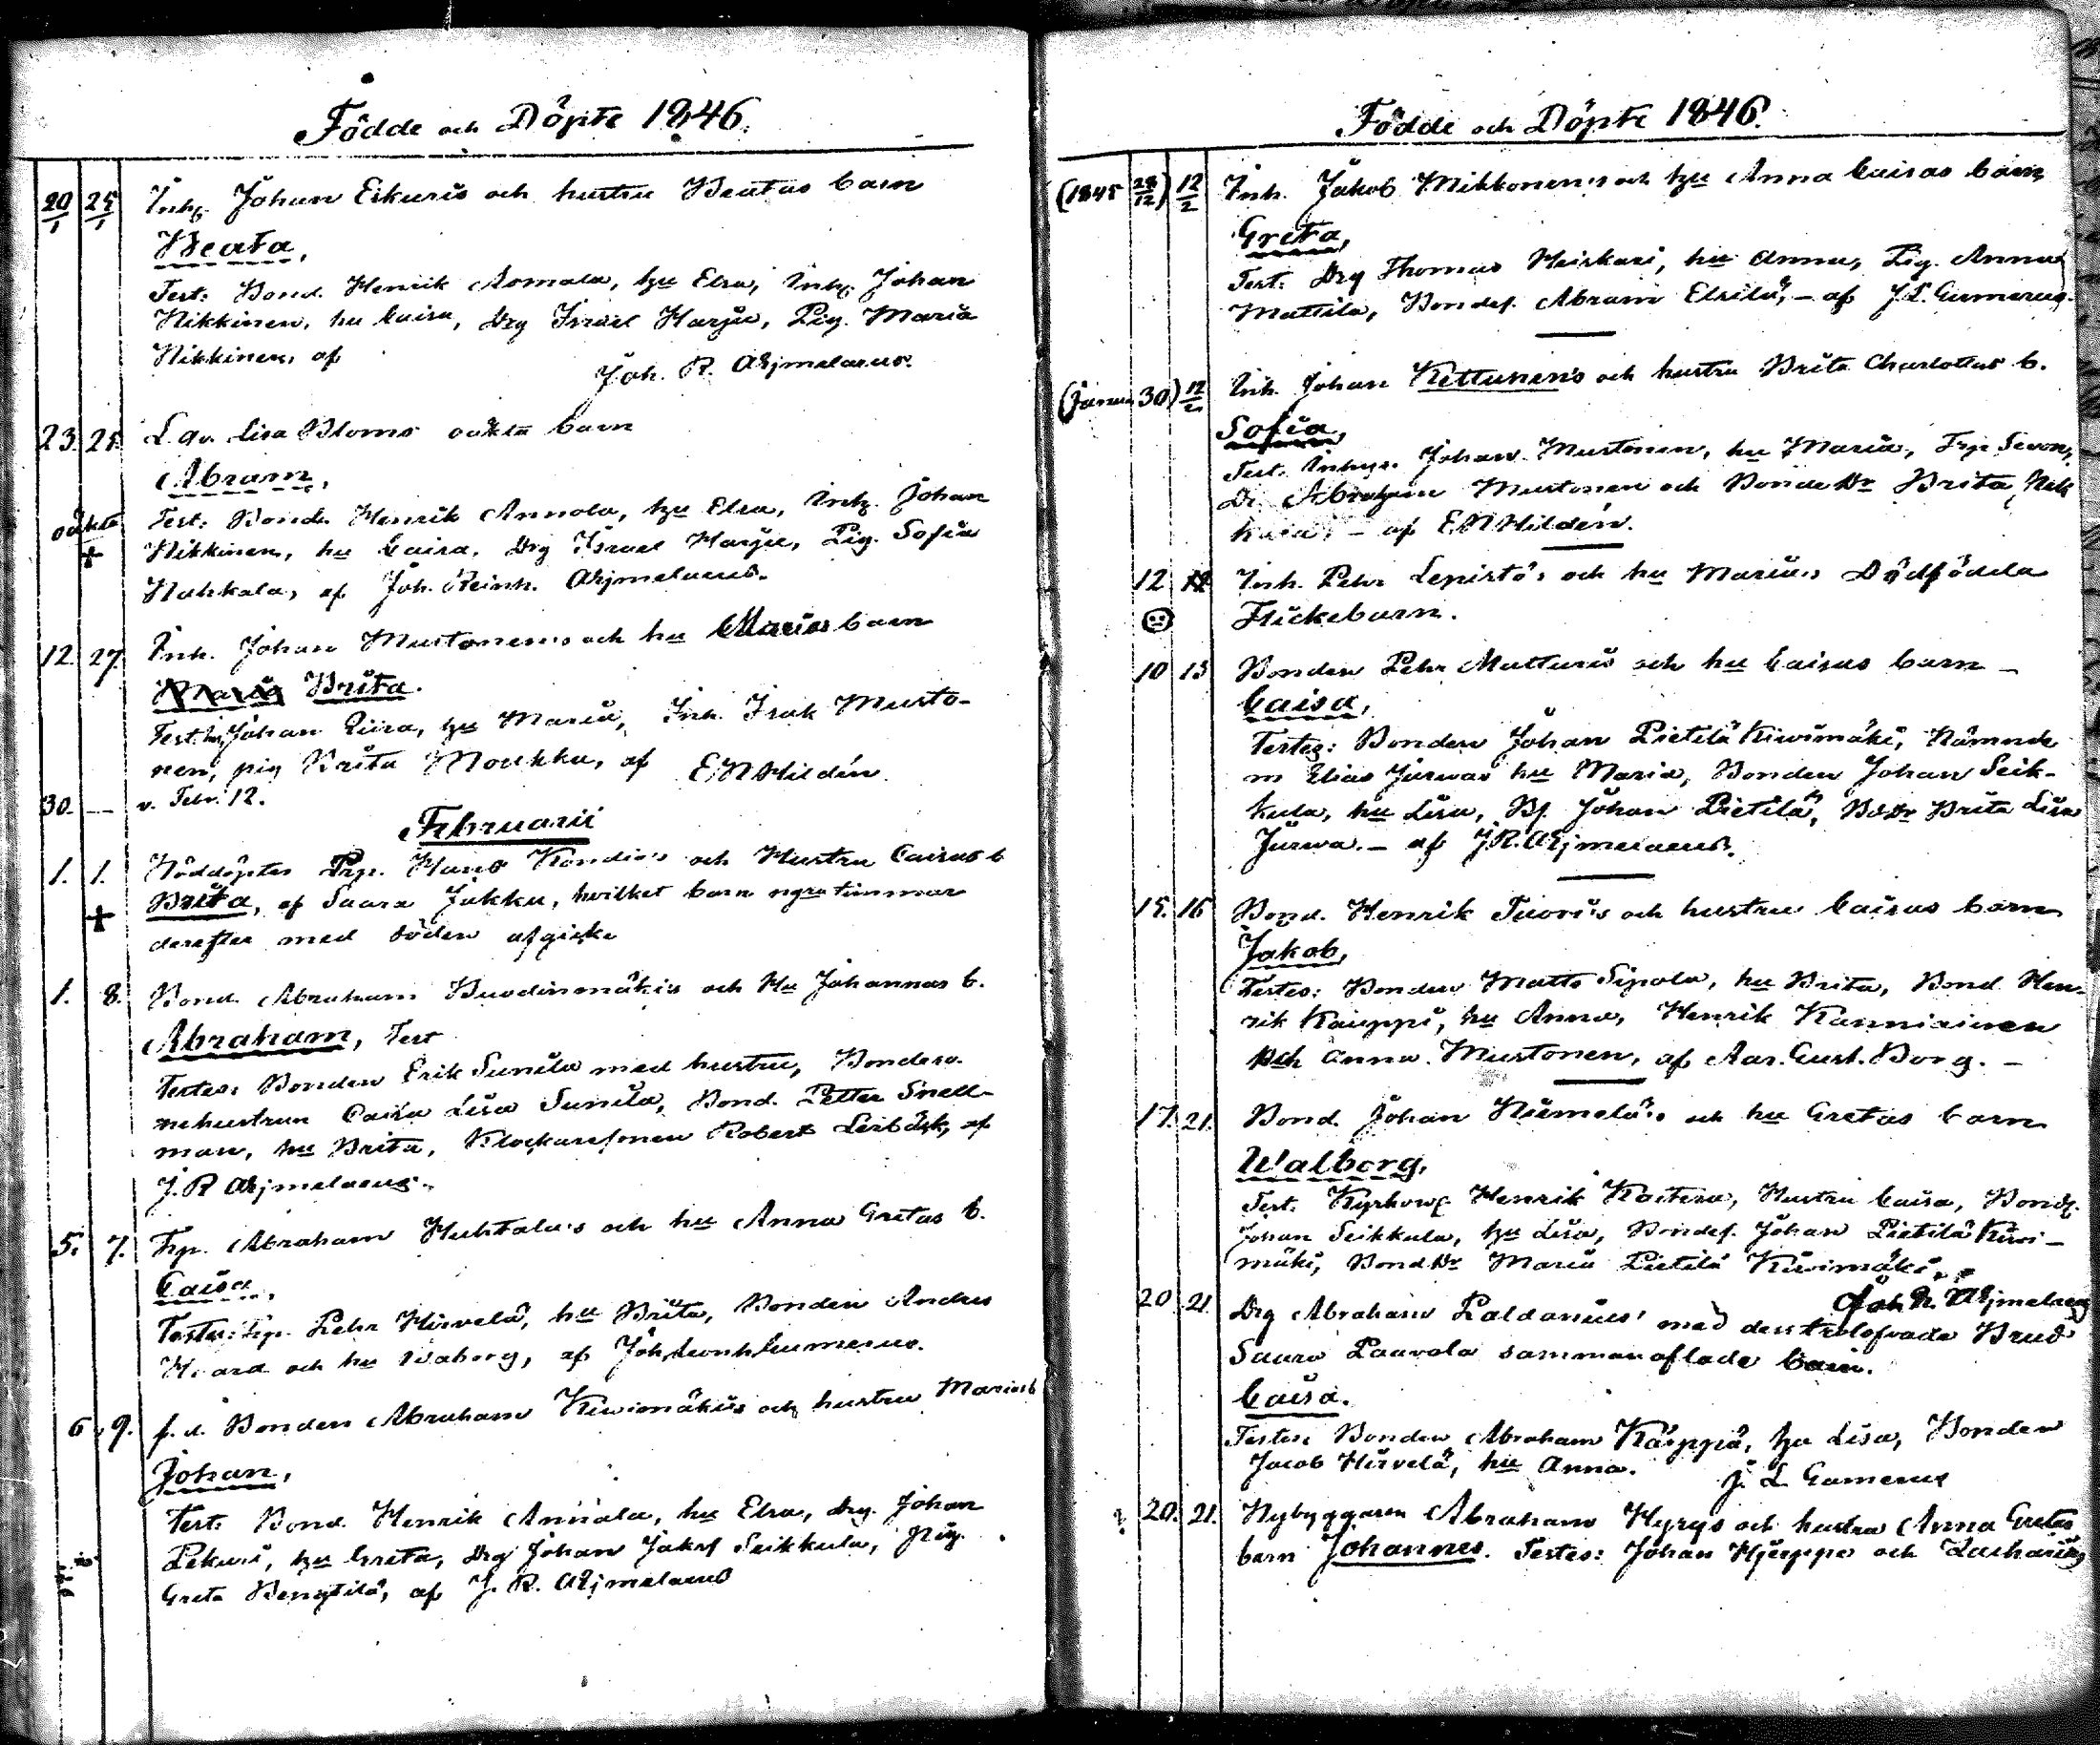 Födde och Döpte 1846.
20/1 25/1 Inh. Johan Eskuris och hustru Beatas barn
Beata,
Test: Bond. Henrik Annala, hu Elsa, Inh. Johan
Nikkinen, hu Caisa, Drg Israel Harju, Pig. Maria
Nikkinen, af
Joh. R. Ahjmelaeus.
23. 25. L. qv. Lisa Bloms oäkta barn
Abram,
oäkta Test: Bond. Henrik Annala, hu Elsa, Inh. Johan
+ Nikkinen, hu Caisa, Drg Israel Harju, Pig. Sofia
Nahkala, af Joh. Reinh. Ahjmelaeus.
12. 27. Inh. Johan Mustonens och hu Marias barn
Maria Brita.
Test: Johan Piira, hu Maria, Inh. Isak Musto-
nen, pig Brita Moukka, af E N Hildén.
30. — v. Febr. 12.
Februarii
1. 1. Nöddöptes Trp. Hans Kondio's och Hustru Caisas b
+ Brita, af Saara Jukku, hvilket barn ngra timmar
derefter med döden afgick
1. 8. Bond. Abraham Buodinmäkis och Hu Johannas b.
Abraham, Test
Testes: Bonden Erik Sunila med hustru, Bondeso-
nehustrun Caisa Lisa Sunila, Bond. Petter Snell-
man, hu Brita, Klockaresonen Robert Leibäck, af
J. R Ahjmelaeus.
5. 7. Trp. Abraham Huhtala's och hu Anna Gretas b.
Caisa,
Testes: Trp. Pehr Hirvelä, hu Brita, Bonden Andres
och hu Waborg, af Joh. Leonh Gumerus.
6. 9. f. d. Bonden Abraham Kiwimäkis och hustru Marias b
Johan,
Test: Bond. Henrik Annala, hu Elsa, drg. Johan
Pekuri, hu Greta, Drg Johan Jakosf Seikkula, pig.
Greta Bengtilä, af J. R. Ahjmelaeus
Födde och Döpte 1846.
(1845 28/12) 12/2 Inh. Jakob Mikkonen's och hu Anna Caisas barn
Greta,
Test: Drg Thomas Heiskari, hu Anna, Pig. Anna
Mattila, Bondes. Abram Elsilä, – af J. L. Gumerus.
(Januar 30) 12/2 Inh. Johan Kettunen's och hustru Brita Charlottas b.
Sofia,
Test. Inhys. Johan Mustonen, hu Maria,
Dr Abraham Mustonen och Bonde Dr Brita
– af E N Hildén.
12 12 Inh. Pehr Lepistö's och hu Marias Dödfödda
Flickebarn.
10 13 Bonden Pehr Matturis och hu Caisas barn –
Caisa,
Testes: Bonden Johan Pietilä Kiwimäki, Nämnde
m Elias Järwas hu Maria, Bonden Johan Seik-
kula, hu Lisa, Bs. Johan Pietilä, Bd Dr Brita Lisa
Järwa. – af J R. Ahjmelaeus.
15. 16 Bond. Henrik Tuoris och hustru Caisas barn
Jakob,
Testes: Bonden Matts Sipola, hu Brita, Bond. Hen-
rik Kauppi, hu Anna, Henrik Kanniainen
och Anna Mustonen, af Aar. Gust. Borg. –
17. 21. Bond. Johan Niemelä's och hu Gretas barn
Walborg,
Test. Kyrkow. Henrik Kaitera, Hustru Caisa, Bond.
Johan Seikkula, hu Lisa, Bondes. Johan Pietilä Kiwi-
mäki, Bond Dr Maria Pietilä Kiwimäki.
Joh R. Ahjmelaeus
20 21. Drg Abraham Paldanius' med dess trolofvade Brud
Saara Paavola sammanaflade barn.
Caisa.
Testes: Bonden Abraham Käippä, hu Lisa, Bonden
Jacob Hirvelä, hu Anna. J. L Gumerus
20. 21. Nybyggaren Abraham Hyrys och hustru Anna Gretas
barn Johannes. Testes: Johan Hjerppe och Zacharias